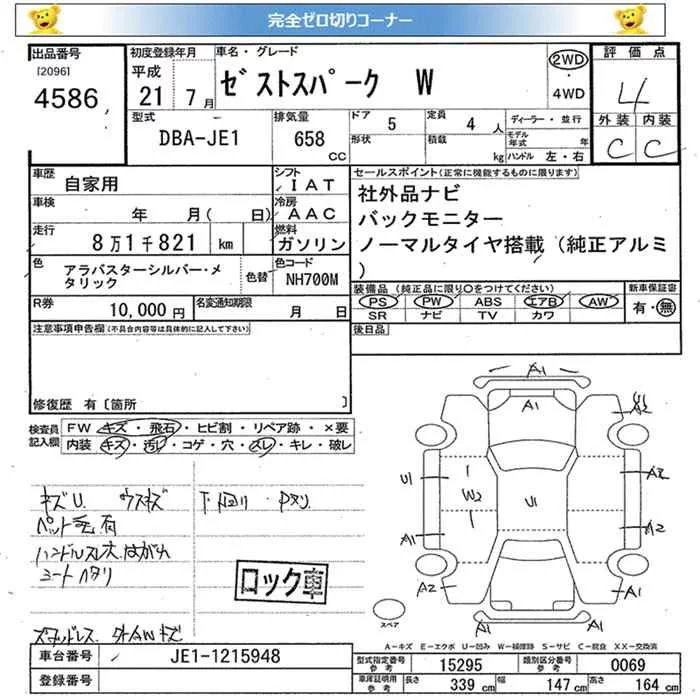 完全ゼロ切りコーナー
出品番号
[2096]
4586
初度登録年月
平成
21 7月
車名・グレード
ゼストスパーク W
2WD
・
4WD
評価点
4
外装 内装
C C
型式
DBA-JE1
排気量
658
CC
ドア
5
形状
定員
4 人
積載
kg
ディーラー・並行
モデル年式 年
ハンドル 左・右
車歴
自家用
シフト
IAT
車検
年 月( 日)
冷房
AAC
走行
8万1千821 km
燃料
ガソリン
色
アラバスターシルバー・メタリック
色替
色コード
NH700M
R券
10,000 円
名変通知期限
月 日
セールスポイント(正常に機能するものに限ります)
社外品ナビ
バックモニター
ノーマルタイヤ搭載(純正アルミ
)
装備品(純正品に限り○をつけてください)
PS PW ABS エアB AW
SR ナビ TV カワ
新車保証書
有・無
後日品
注意事項申告欄(不具合内容等は具体的に記入して下さい)
修復歴 有〔箇所 〕
検査員
記入欄
FW キズ・飛石・ヒビ割・リペア跡・×要
内装 キズ・汚レ・コゲ・穴・スレ・キレ・破レ
キズU. ウスキズ
ペット毛有
ハンドルスレ
シートヘタリ
ロック車
スタッドレス 外AWキズ
A1
A1
A2
U1
W2
U1
A2
A1
A2
A2
A1
A1
スペア
A-キズ E-エクボ U-凹み W-補修跡 S-サビ C-腐食 XX-交換済
車台番号
JE1-1215948
登録番号
型式指定番号
参考
15295
類別区分番号
参考
0069
車庫証明用
参考
長さ 339 cm
幅 147 cm
高さ 164 cm